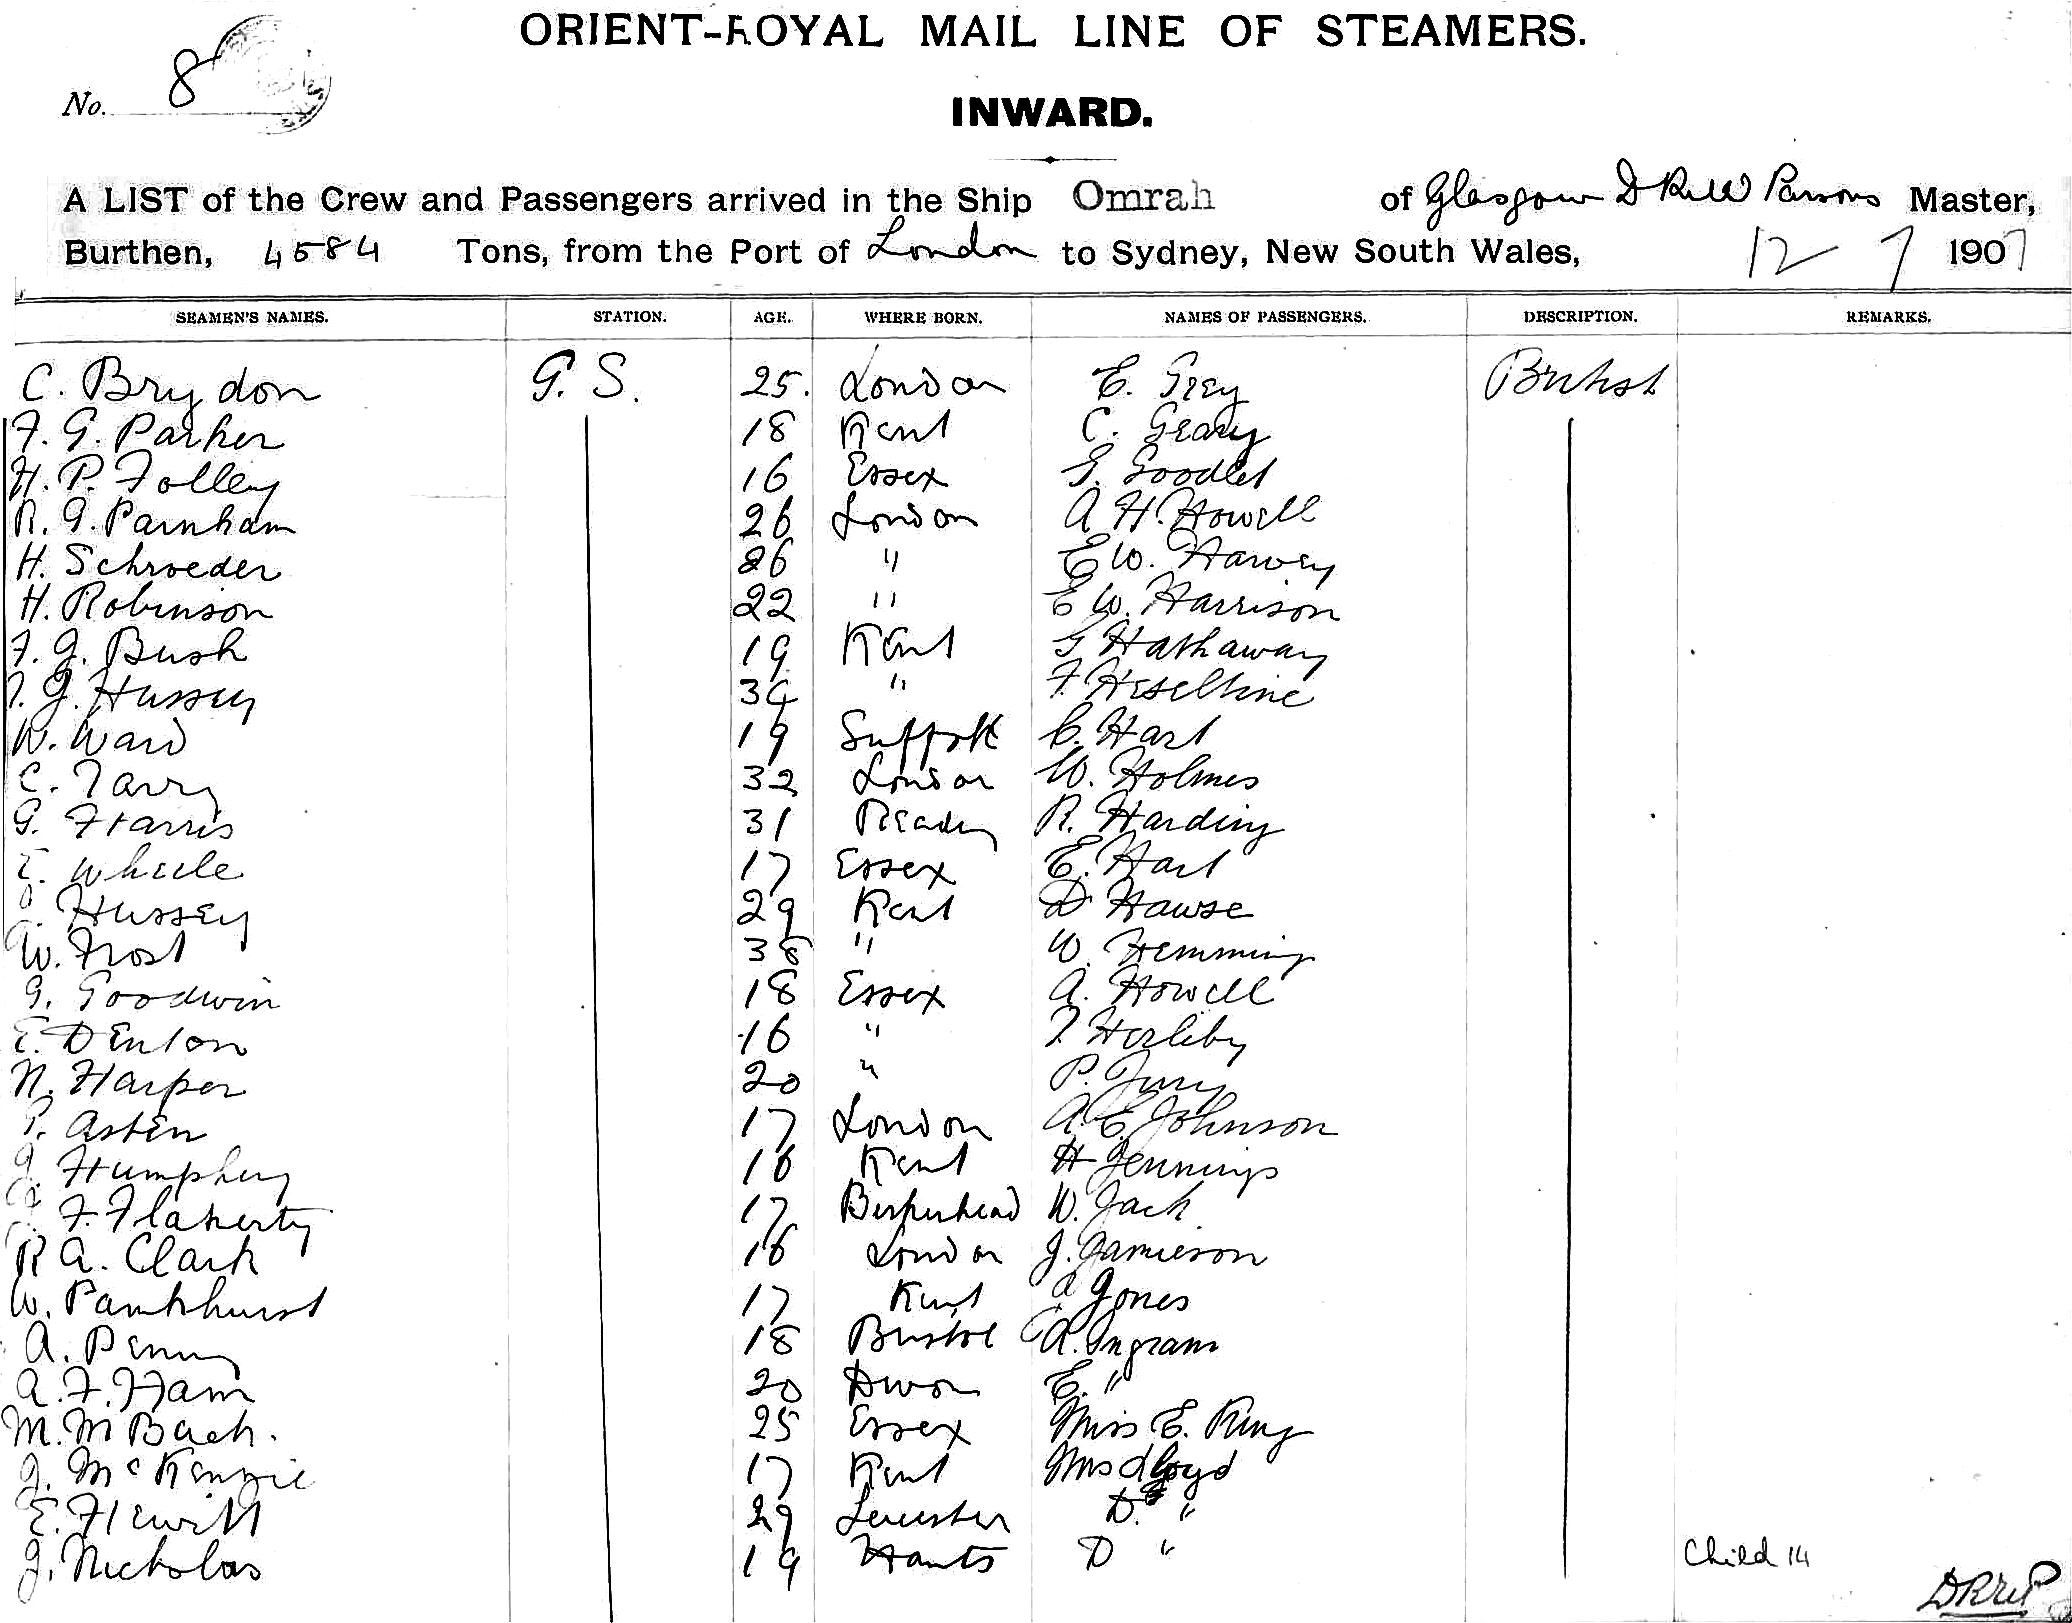 ORIENT-ROYAL MAIL LINE OF STEAMERS.
No. 8
INWARD.
A LIST of the Crew and Passengers arrived in the Ship Omrah of Glasgow Parsons Master,
Burthen, 4584 Tons, from the Port of London to Sydney, New South Wales, 12 7 1907
SEAMEN'S NAMES. STATION. AGE. WHERE BORN. NAMES OF PASSENGERS. DESCRIPTION. REMARKS.
C. Brydon G. S. 25. London E. Grey British
F. G. Parker 18 Kent C. Geary
H. P. Folley 16 Essex G. Goodlet
R. G. Parnham 26 London A H. Howell
H. Schroeder 26 " E W. Harvey
H. Robinson 22 " E W. Harrison
F. G. Bush 19 Kent G Hathaway
J. Hussey " F Heseltine
W. Ward 19 Suffolk C. Hart
C. Tarry 32 London W. Holmes
G. Harris 31 Reading R. Harding
E. Wheele 17 Essex E. Hart
Hussey 29 Kent D Hawse
W. Frost 38 " W. Hemming
G. Goodwin 18 Essex A. Howell
E. Denton 16 "
N. Harper 20 " P. Jury
P. Asten 17 London A. E. Johnson
J Humphrey 16 Kent H Jennings
F. Flaherty 17 Berkenhead W. Jack
R A. Clark 16 London J. Jamieson
W. Pankhurst 17 Kent A Jones
A. Penny 18 Bristol A. Ingram
A. F. Ham 20 Devon E. "
M. M Bach. 25 Essex Miss E. King
J. McKenzie 17 Kent Mrs Lloyd
E. Hewitt 29 Leicester D. "
J. Nicholas 19 Hants D " Child 14